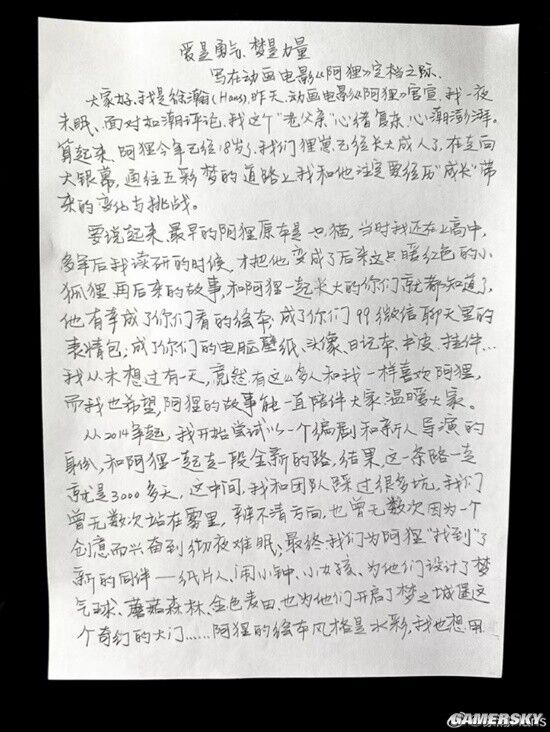 爱是勇气、梦是力量
写在动画电影《阿狸》定档之际
大家好,我是徐瀚(Hans),昨天,动画电影《阿狸》官宣,我一夜
未眠、面对如潮评论,我这个“老父亲”心绪复杂、心潮澎湃。
算起来,阿狸今年已经18岁了,我们狸崽已经长大成人了,在走向
大银幕,通往五彩梦的道路上我和他注定要经历“成长”带
来的变化与挑战。
要说起来,最早的阿狸原本是一只猫,当时我还在上高中,
多年后我读研的时候,才把他变成了后来这只暖红色的小
狐狸,再后来的故事,和阿狸一起长大的你们就都知道了,
他有幸成了你们看的绘本,成了你们QQ微信聊天里的
表情包,成了你们的电脑壁纸、头像、日记本、书皮、挂件...
我从未想过有一天,竟然有这么多人和我一样喜欢阿狸,
而我也希望,阿狸的故事能一直陪伴大家、温暖大家。
从2014年起,我开始尝试以一个编剧和新人导演的
身份,和阿狸一起走一段全新的路,结果,这一条路一走
就是3000多天,这中间,我和团队踩过很多坑,我们
曾无数次站在雾里,辨不清方向,也曾无数次因为一个
创意而兴奋到彻夜难眠,最终我们为阿狸“找到”了
新的同伴——纸片人、闹小钟、小女孩、为他们设计了梦
气球、蘑菇森林、金色麦田,也为他们开启了梦之城堡这
个奇幻的大门......阿狸的绘本风格是水彩,我也想用
GAMERSKY